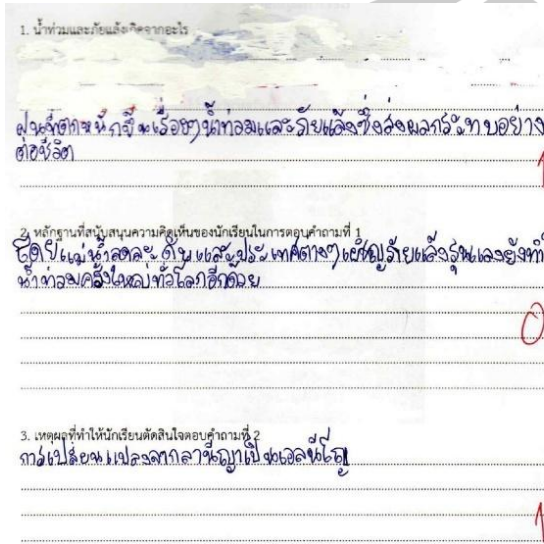 1. น้ำท่วมและภัยแล้งเกิดจากอะไร
ฝนที่ตกหนักขึ้นเรื่อยๆน้ำท่วมและภัยแล้งซึ่งส่งผลกระทบอย่าง
ต่อชีวิต
1
2. หลักฐานที่สนับสนุนความคิดเห็นของนักเรียนในการตอบคำถามที่ 1
โดยแม่น้ำลดละดับและประเทศต่างๆเผชิญภัยแล้งรุนแลงยังทำ
น้ำท่วมครั้งใหญ่ทั่วโลกอีกด้วย
0
3. เหตุผลที่ทำให้นักเรียนตัดสินใจตอบคำถามที่ 2
การเปลี่ยนแปลงจากลานีญาเป็นเอลนีโญ
1